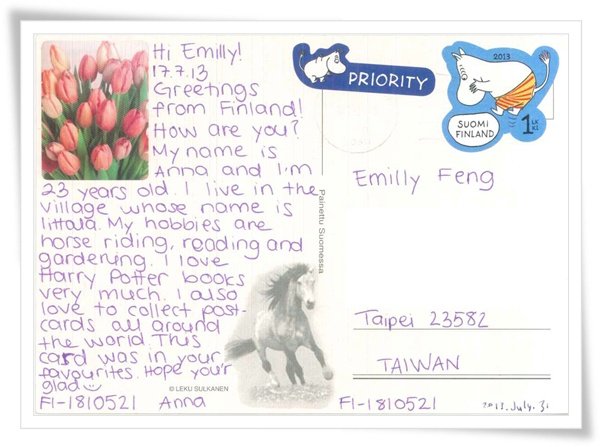 Hi Emilly!
17.7.13
Greetings
from Finland!
How are you?
My name is
Anna and I'm
23 years old. I live in the
village whose name is
Iittala. My hobbies are
horse riding, reading and
gardening. I love
Harry Potter books
very much. I also
love to collect post-
cards all around
the world. This
card was in your
favourites. Hope you're
glad
FI-1810521 Anna
© LEKU SULKANEN
Painettu Suomessa
PRIORITY
2013
SUOMI
FINLAND
1 LK
KL
Emilly Feng
Taipei 23582
TAIWAN
FI-1810521
2013. July. 31